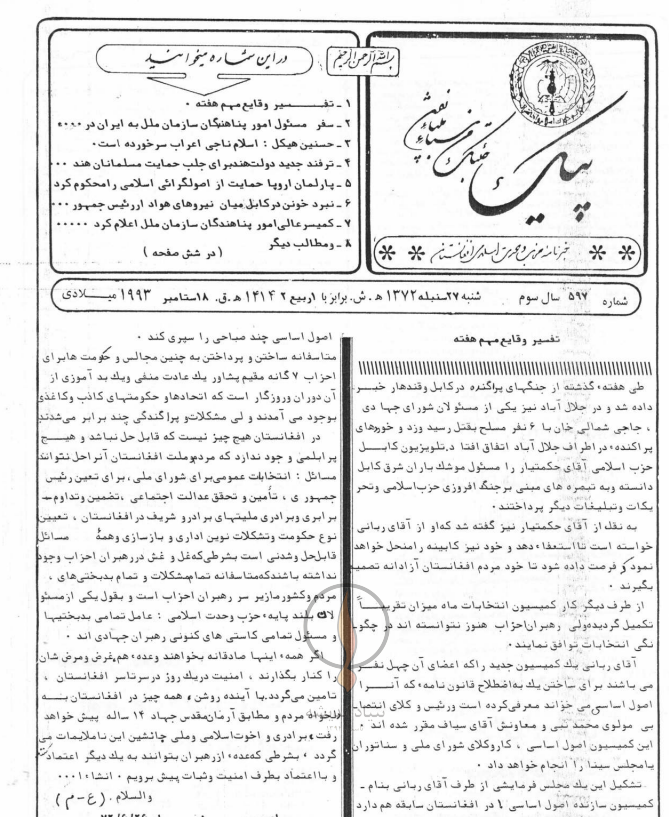 بسم الله الرحمن الرحیم
در این شماره میخوانید
۱ ـ تفسیر وقایع مهم هفته ۰
۲ ـ سفر مسئول امور پناهندگان سازمان ملل به ایران در ۰۰۰۰
۳ ـ حسنین هیکل : اسلام ناجی اعراب سرخورده است۰
۴ ـ ترفند جدید دولت هند برای جلب حمایت مسلمانان هند ۰۰۰
۵ ـ پارلمان اروپا حمایت از اصولگرائی اسلامی را محکوم کرد
۶ ـ نبرد خونین در کابل میان نیروهای هوادار رئیس جمهور ۰۰۰
۷ ـ کمیسر عالی امور پناهندگان سازمان ملل اعلام کرد ۰۰۰۰۰
۸ ـ ومطالب دیگر
( در شش صفحه )
پیک
خبرنامه حزب وحدت اسلامی افغانستان
شماره ۵۹۷ سال سوم شنبه ۲۷ سنبله ۱۳۷۲ ه . ش. برابر با ۱ ربیع ۲ ۱۴۱۴ ه . ق. ۱۸ سپتامبر ۱۹۹۳ میــلادی
تفسیر وقایع مهم هفته
طی هفته، گذشته از جنگهای پراگنده در کابل وقندهار خبر
داده شد و در جلال آباد نیز یکی از مسئولان شورای جهادی
، حاجی شمالی خان با ۶ نفر مسلح بقتل رسید وزد و خوردهای
پراکنده، در اطراف جلال آباد اتفاق افتاد .تلویزیون کابل
حزب اسلامی آقای حکمتیار را مسئول موشک باران شرق کابل
دانسته وبه تبصره های مبنی بر جنگ افروزی حزب اسلامی وتحر
یکات وتبلیغات دیگر پرداختند ۰
به نقل از آقای حکمتیار نیز گفته شد که او از آقای ربانی
خواسته است تا استعفا، دهد و خود نیز کابینه را منحل خواهد
نمود و فرصت داده شود تا خود مردم افغانستان آزادانه تصمیم
بگیرند ۰
از طرف دیگر کار کمیسیون انتخابات ماه میزان تقریبـــاً
تکمیل گردیده ولی رهبران احزاب هنوز نتوانسته اند در چگو
نگی انتخابات توافق نمایند ۰
آقای ربانی یک کمیسیون جدید را که اعضای آن چهل نفـر
می باشند برای ساختن یک به اصطلاح قانون نامه، که آنـــرا
اصول اساسی می خواند معرفی کرده است ورئیس و کلای انتصا
بی مولوی محمد نبی و معاونش آقای سیاف مقرر شده اند ۰
این کمیسیون اصول اساسی ، کاروکلای شورای ملی و سناتوران
یا مجلس سینا را انجام خواهد داد ۰
تشکیل این یک مجلس فرمایشی از طرف آقای ربانی بنام ـ
کمیسیون سازنده اصول اساسی در افغانستان سابقه هم دارد
اصول اساسی چند صباحی را سپری کند ۰
متاسفانه ساختن و پرداختن به چنین مجالس و حکومت هابرای
احزاب ۷ گانه مقیم پشاور یک عادت منفی ویک بد آموزی از
آن دوران وروزگار است که اتحادهاو حکومتهای کاذب وکاغذی
بوجود می آمدند و لی مشکلات و پراگندگی چند برابر می شدند
در افغانستان هیچ چیز نیست که قابل حل نباشد و هیــچ
پرابلمی و جود ندارد که مردم وملت افغانستان آنرا حل نتوانند
مسائل : انتخابات عمومی برای شورای ملی ، برای تعین رئیس
جمهوری ، تأمین و تحقق عدالت اجتماعی ،تضمین وتداوم ـ
برابری وبرادری ملیتهای برادرو شریف در افغانستان ، تعیین
نوع حکومت وتشکلات نوین اداری و بازسازی وهمهٔ مسائل
قابل حل وشدنی است بشرطی که غل و غش در رهبران احزاب وجود
نداشته باشند که متاسفانه تمام مشکلات و تمام بدبختی های ،
مردم وکشور مازیر سر رهبران احزاب است و بقول یکی از مسئو
لان بلند پایه، حزب وحدت اسلامی : عامل تمامی بدبختیها
و مسئول تمامی کاستی های کنونی رهبران جهادی اند ۰
اگر همه، اینها صادقانه بخواهند وعده، هم، غرض ومرض شان
را کنار بگذارند ، امنیت دریک روز در سرتاسر افغانستان ،
تامین می گردد .با آینده روشن، همه چیز در افغانستان بـــه
دلخواه مردم و مطابق آرمان مقدس جهاد ۱۴ ساله پیش خواهد
رفت، برادری و اخوت اسلامی وملی جانشین این ناملایمات می
گردد ، بشرطی که عده، از رهبران بتوانند به یک دیگر اعتماد کنند
و با اعتماد بطرف امنیت وثبات پیش برویم ۰ انشا ۰۱۰۰۰
والسلام . ( ع - م )